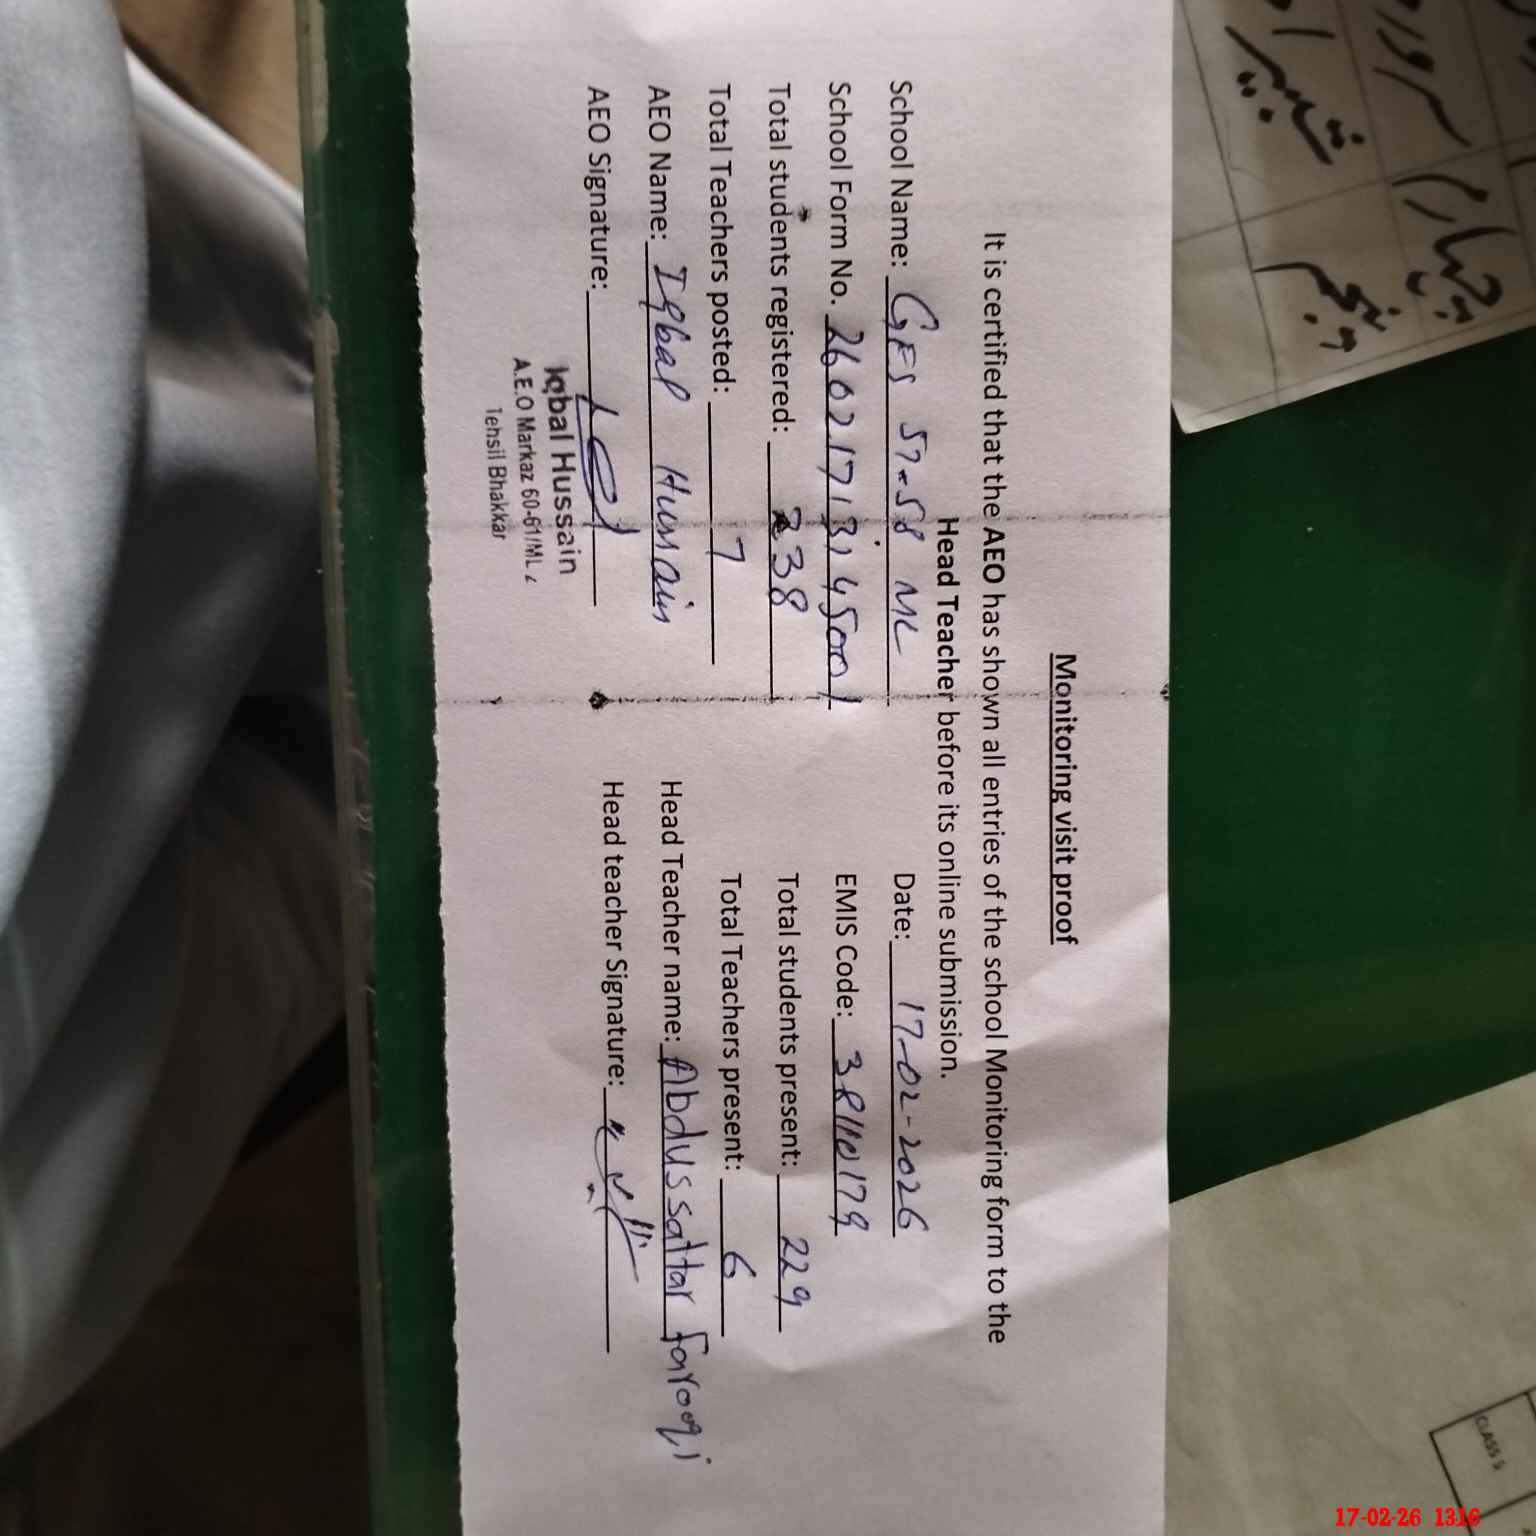 Monitoring visit proof
It is certified that the AEO has shown all entries of the school Monitoring form to the
Head Teacher before its online submission.
School Name: GES 57-58 ML Date: 17-02-2026
School Form No. EMIS Code: 38110179
Total students registered: 238 Total students present: 229
Total Teachers posted: 7 Total Teachers present: 6
AEO Name: Iqbal Hussain Head Teacher name: Abdussattar Farooqi
AEO Signature: Head teacher Signature:
Iqbal Hussain
A.E.O Markaz 60-61/ML
Tehsil Bhakkar
چہارم
و پنجم
CLASS 5
17-02-26 1316